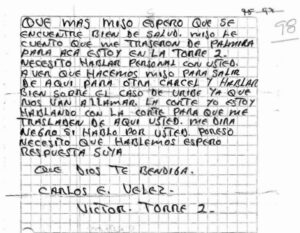 95-97
98
QUE MAS MIJO ESPERO QUE SE
ENCUENTRE BIEN DE SALUD. MIJO LE
CUENTO QUE ME TRAJERON DE PALMIRA
PARA ACA ESTOY EN LA TORRE 2.
NECESITO HABLAR PERSONAL CON USTED.
A VER QUE HACEMOS MIJO PARA SALIR
DE AQUI PARA OTRA CARCEL Y HABLAR
BIEN SOBRE EL CASO DE URIBE YA QUE
NOS VAN ALLAMAR. LA CORTE YO ESTOY
HABLANDO CON LA CORTE PARA QUE ME
TRASLADEN DE AQUI USTED. ME DIRA
NEGRO SI HABLO POR USTED. PORESO
NECESITO QUE HABLEMOS ESPERO
RESPUESTA SUYA
QUE DIOS TE BENDIGA.
CARLOS E. VELEZ.
VICTOR. TORRE 2.